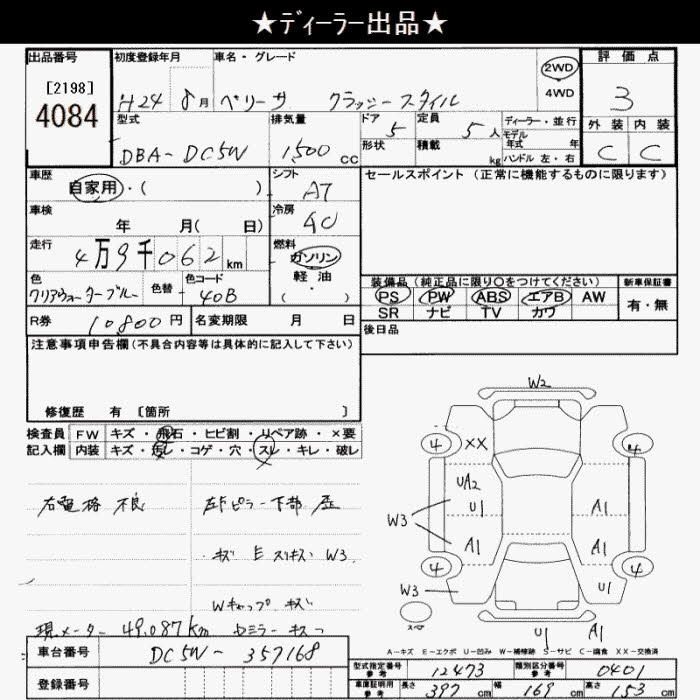 ★ディーラー出品★
出品番号
[2198]
4084
初度登録年月
H24 8月
車名・グレード
ベリーサ クラッシースタイル
2WD
4WD
評価点
3
外装 内装
C C
型式
DBA-DC5W
排気量
1500 cc
ドア
5
形状
定員
5人
積載
kg
ディーラー・並行
モデル
年式 年
ハンドル 左・右
車歴
自家用・( )
シフト
AT
車検
年 月( 日)
冷房
AC
走行
4万9千062km
燃料
ガソリン
軽・油
( )
色
クリアウォーターブルー
色替
色コード
40B
R券
10800円
名変期限 月 日
セールスポイント(正常に機能するものに限ります)
装備品(純正品に限り○をつけてください)
PS PW ABS エアB AW
SR ナビ TV カワ
新車保証書
有・無
後日品
注意事項申告欄(不具合内容等は具体的に記入して下さい)
修復歴 有 [箇所 ]
検査員
記入欄
FW キズ・飛石・ヒビ割・リペア跡・×要
内装 キズ・汚レ・コゲ・穴・スレ・キレ・破レ
右電格 不良
左Fピラー下部 圧
キズ E スリキズ W3
Wキャップ キズ
現メーター 49.087km
ミラー キズ
W2
4 XX 4
UA2
U1 A1
W3
A1 A1
4 4
W3 U1
U1 A1
A-キズ E-エクボ U-凹み W-補修跡 S-サビ C-腐食 XX-交換済
車台番号
DC5W-357168
登録番号
型式指定番号
参考
12473
類別区分番号
参考
0401
車庫証明用
参考
長さ 397cm 幅 169cm 高さ 153cm